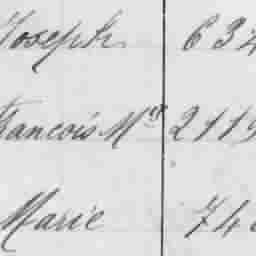 Joseph 634
François Mie 2119
Marie 746